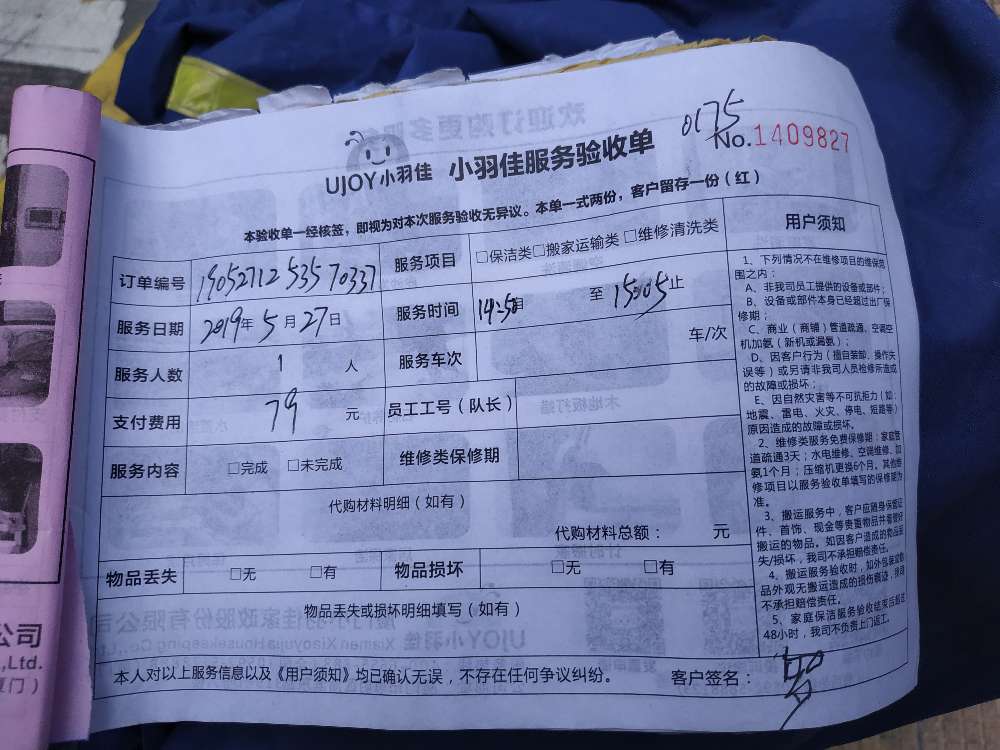 0175
UJOY小羽佳 小羽佳服务验收单 No.1409827
本验收单一经核签，即视为对本次服务验收无异议。本单一式两份，客户留存一份（红）
订单编号 19052712 535 70337 服务项目 □保洁类□搬家运输类□维修清洗类
服务日期 2019年5月27日 服务时间 14:50 至 15:05止
服务人数 1 人 服务车次 车/次
支付费用 79 元 员工工号（队长）
服务内容 □完成 □未完成 维修类保修期
代购材料明细（如有）
代购材料总额： 元
物品丢失 □无 □有 物品损坏 □无 □有
物品丢失或损坏明细填写（如有）
本人对以上服务信息以及《用户须知》均已确认无误，不存在任何争议纠纷。 客户签名：
用户须知
1、下列情况不在维修项目的维保范
围之内：
A、非我司员工提供的设备或部件；
B、设备或部件本身已经超过出厂保
修期；
C、商业（商铺）管道疏通、空调空
机加氨（新机或漏氨）；
D、因客户行为（擅自装卸、操作失
误等）或另请非我司人员检修所造成
的故障或损坏；
E、因自然灾害等不可抗拒力（如：
地震、雷电、火灾、停电、短路等）
原因造成的故障或损坏。
2、维修类服务免费保修期：家庭管
道疏通3天；水电维修、空调维修、加
氨1个月；压缩机更换6个月。其他维
修项目以服务验收单填写的保修期为
准。
3、搬运服务中，客户应随身保管证
件、首饰、现金等贵重物品并看管好
搬运的物品。如因客户造成的物品丢
失/损坏，我司不承担赔偿责任。
4、搬运服务验收时，如外包装或物
品外观无搬运造成的损伤痕迹，我司
不承担赔偿责任。
5、家庭保洁服务验收结束后超过
48小时，我司不负责上门返工。
公司
,Ltd.
厦门）